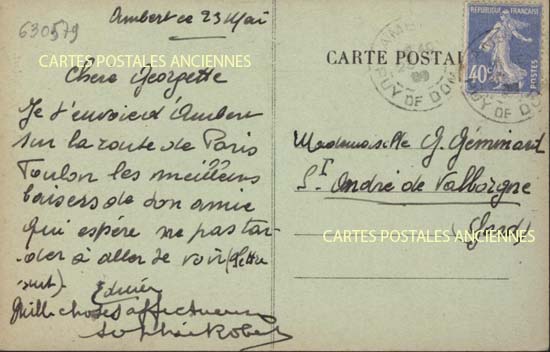 630579
Ambert ce 23 Mai
CARTES POSTALES ANCIENNES
Chère Georgette
Je t'envoie d'Ambert
sur la route de Paris
Toulon les meilleurs
baisers de don amie
qui espère ne pas tar-
der à aller de voir (Lettre
suit).
Mille choses affectueuses
CARTE POSTALE
AMBERT
PUY DE DOME
REPUBLIQUE FRANÇAISE
40c
POSTES
Mademoiselle G. Géminard
St André de Valborgne
(Gard)
CARTES POSTALES ANCIENNES